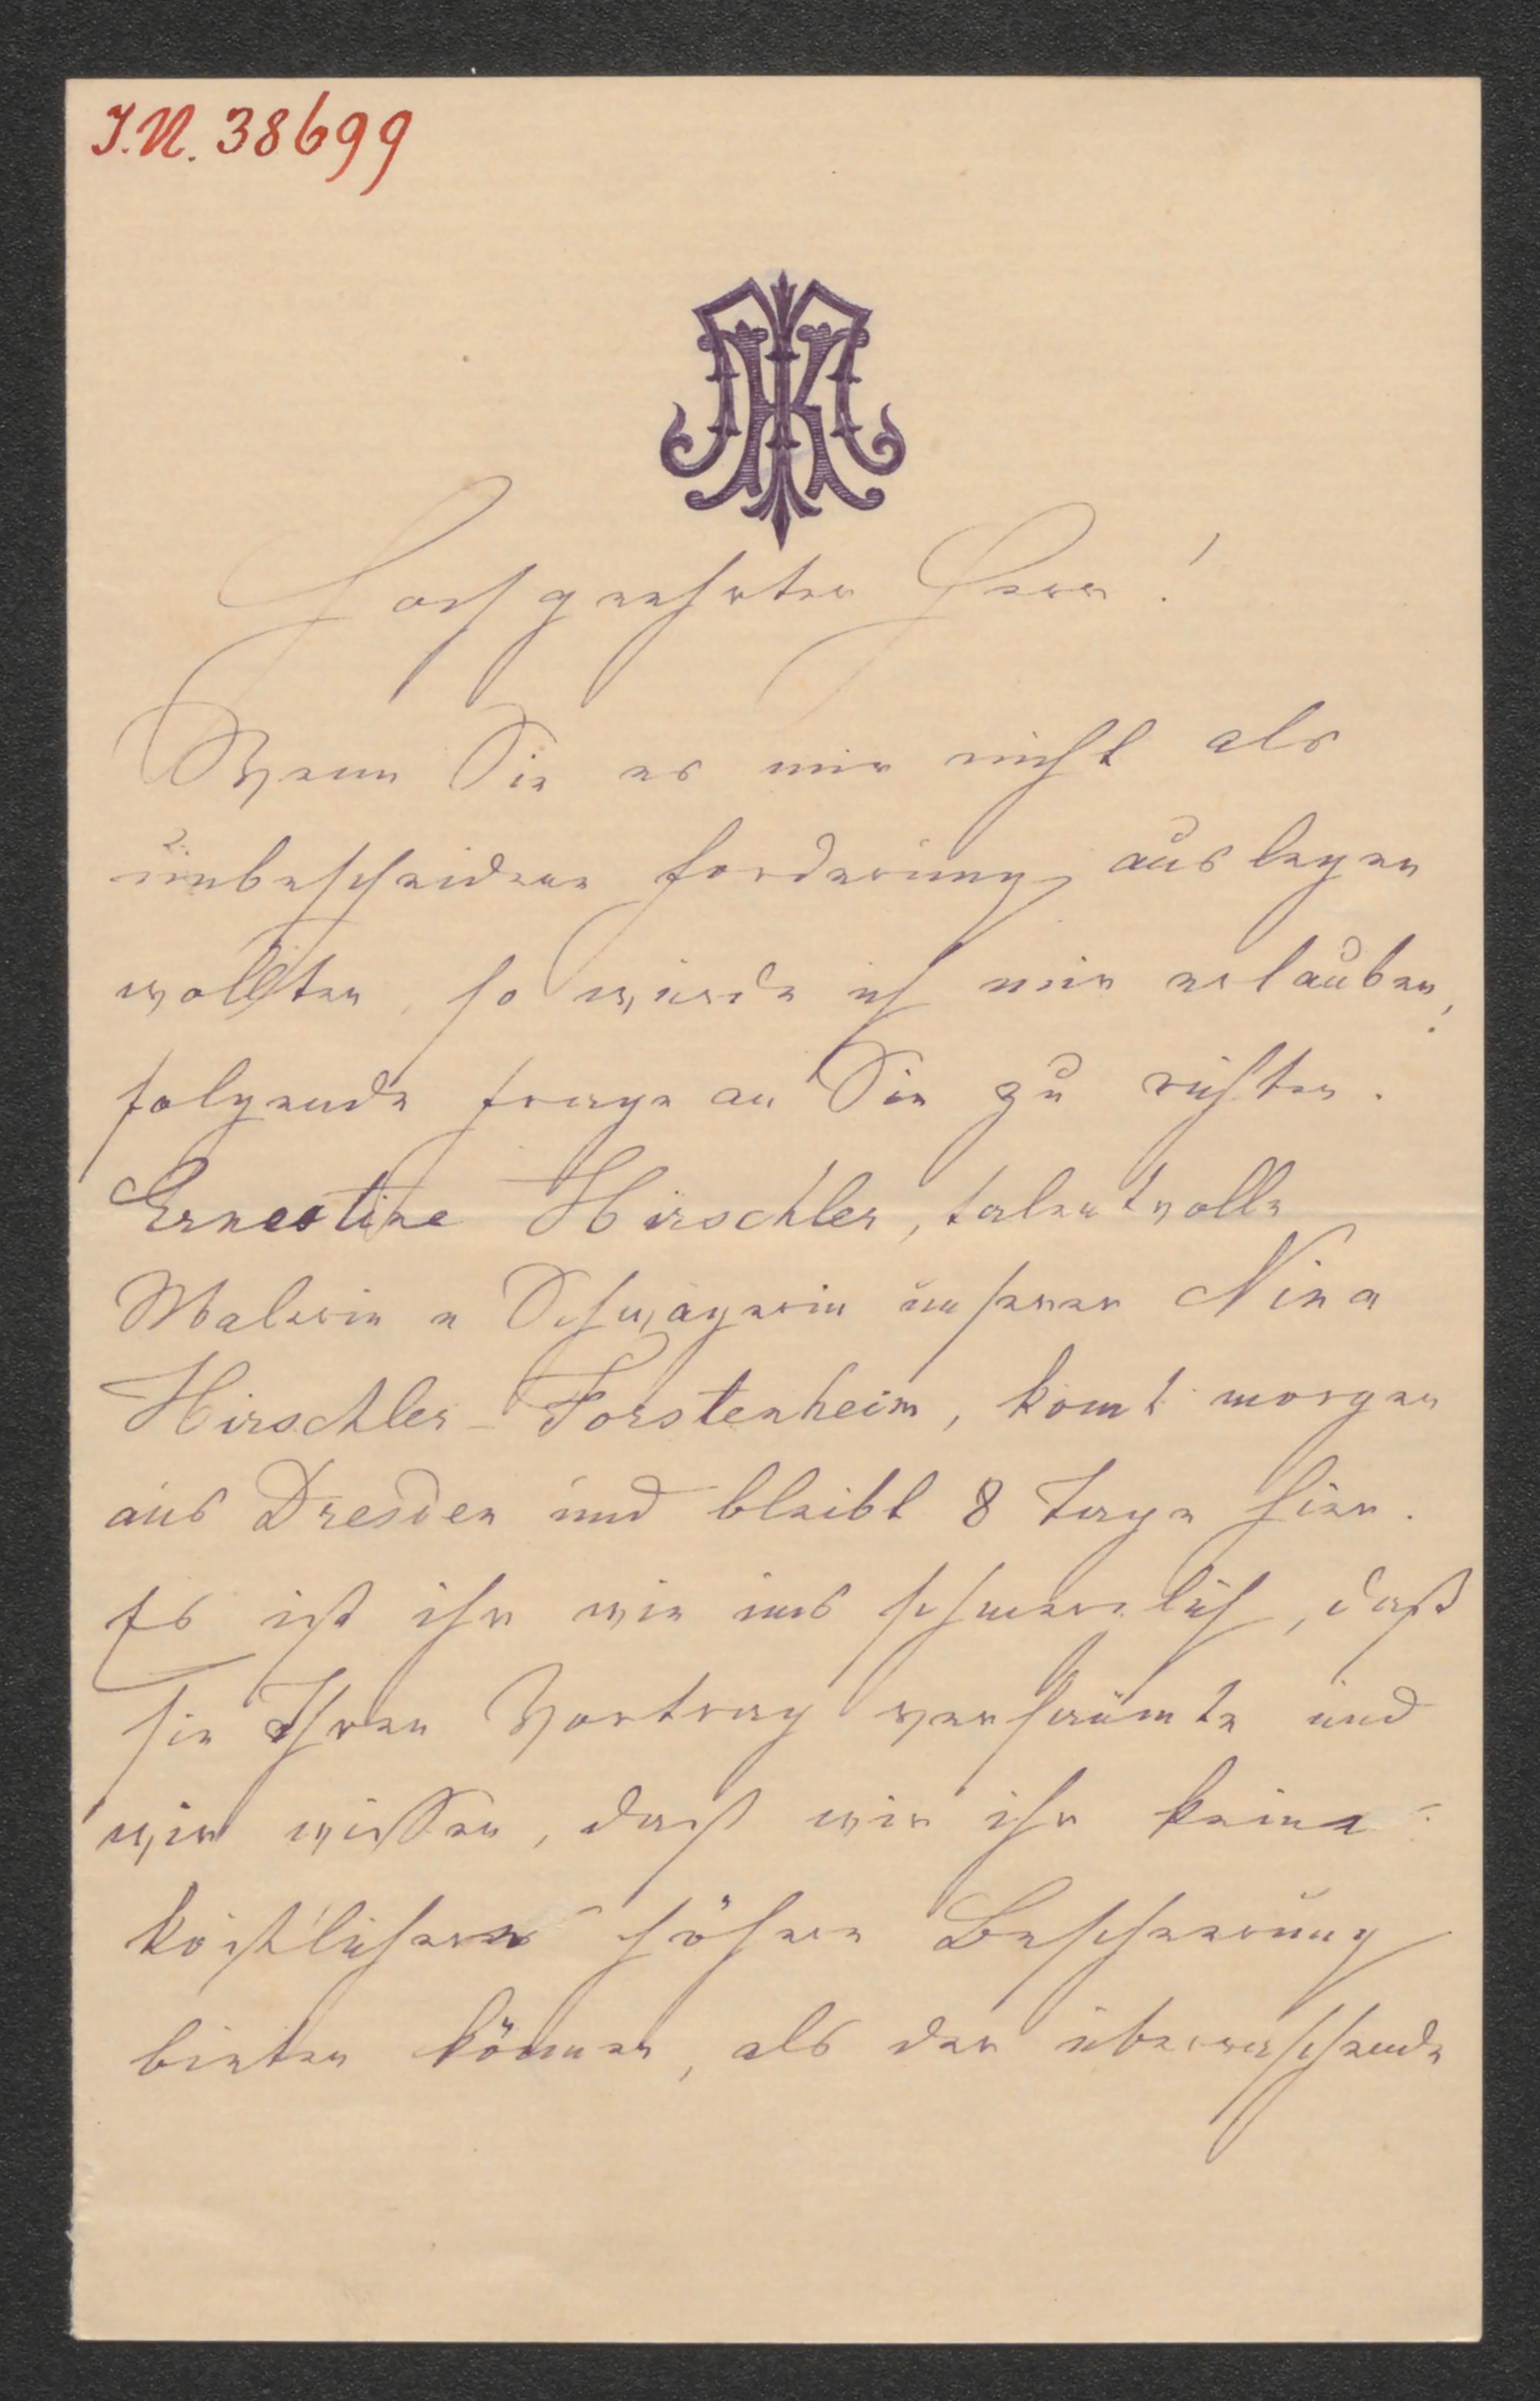 I.N. 38699
MK
Hochgeehrter Herr!
Wenn Sie es mir nicht als
unbescheidene Forderung auslegen
wollten, so würde ich mir erlauben,
folgende Frage an Sie zu richten.
Ernestine Hirschler, talentvolle
Malerin u Schwägerin unserer Nina
Hirschler-Forstenheim, komt morgen
aus Dresden und bleibt 8 Tage hier.
Es ist ihr wie uns schmerzlich, daß
sie Ihren Vortrag versäumte und
wir wissen, daß wir ihr keine
köstlichere höhere Bescheerung
bieten können, als der überraschende